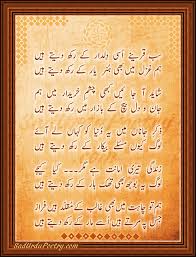 سب قرینے اُسی دلدار کے رکھ دیتے ہیں
ہم غزل میں بھی ہنر یار کے رکھ دیتے ہیں
شاید آ جائیں کبھی چشمِ خریدار میں ہم
جان و دل بیچ کے بازار میں رکھ دیتے ہیں
ذکرِ جاناں میں یہ دنیا کو کہاں لے آئے
لوگ کیوں مسئلے بیکار کے رکھ دیتے ہیں
زندگی تیری امانت ہے مگر کیا کیجے
لوگ یہ بوجھ بھی تھک ہار کے رکھ دیتے ہیں
ہم تو چاہت میں بھی غالب کے مقلد ہیں فراز
جس پہ مرتے ہیں اُسے مار کے رکھ دیتے ہیں
SadUrduPoetry.com